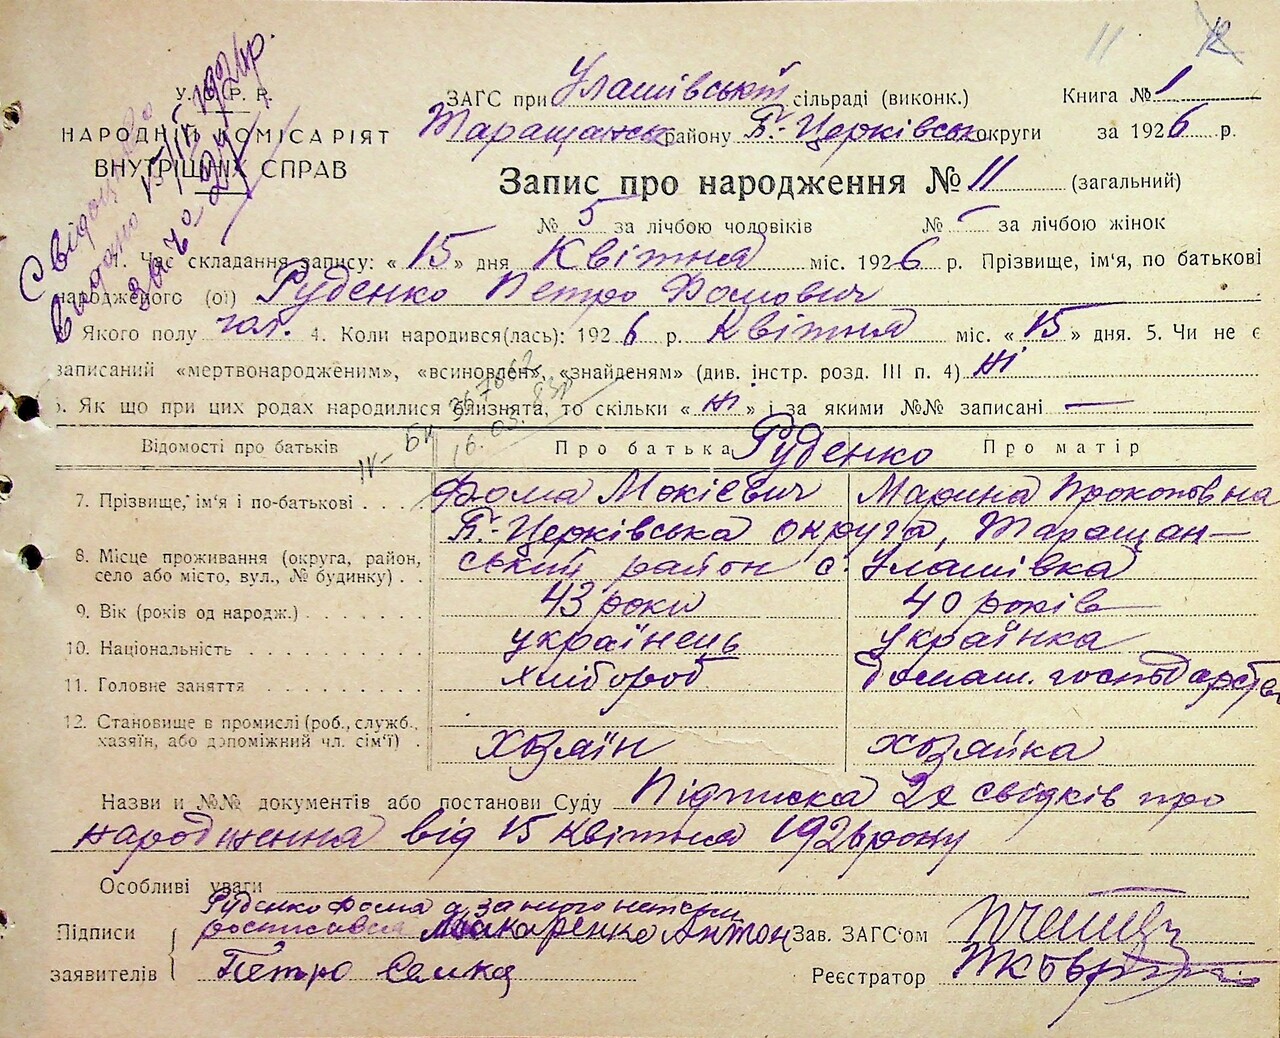 11 12
У.С.Р.Р.
НАРОДНІЙ КОМІСАРІЯТ
ВНУТРІШНІХ СПРАВ
Свідоцтво
видано 15/IV 1926р.
за №
ЗАГС при Улашівській сільраді (виконк.) Книга № 1
Таращанськ району Б.-Церківськ округи за 1926 р.
Запис про народження № 11 (загальний)
№ 5 за лічбою чоловіків № – за лічбою жінок
1. Час складання запису: «15» дня Квітня міс. 1926 р. Прізвище, ім'я, по батькові
народженого (ої) Руденко Петро Фомович
Якого полу чол. 4. Коли народився(лась): 1926 р. Квітня міс. «15» дня. 5. Чи не є
записаний «мертвонародженим», «всиновлен», «знайденям» (див. інстр. розд. III п. 4) ні
6. Як що при цих родах народилися близнята, то скільки «ні» і за якими №№ записані —
IV-БК 367062
16.03.83р
Відомості про батьків Про батька Про матір
Руденко
7. Прізвище, ім'я і по-батькові . . . Фома Мокієвич Марина Прокоповна
Б.-Церківська округа, Таращан-
8. Місце проживання (округа, район, ський район с. Улашівка
село або місто, вул., № будинку) . .
9. Вік (років од народж.) . . . . . . . 43 роки 40 років
10. Національність . . . . . . . . . українець українка
11. Головне заняття . . . . . . . . . хлібороб домаш. господарство
12. Становище в промислі (роб., служб.,
хазяїн, або допоміжний чл. сім'ї) . хозяїн хозяйка
Назви и №№ документів або постанови Суду Підписка 2х свідків про
народження від 15 Квітня 1926 року
Особливі уваги
Руденко Фома а за його неписьм
Підписи росписався Макаренко Антон Зав. ЗАГС'ом
заявителів Петро Реєстратор